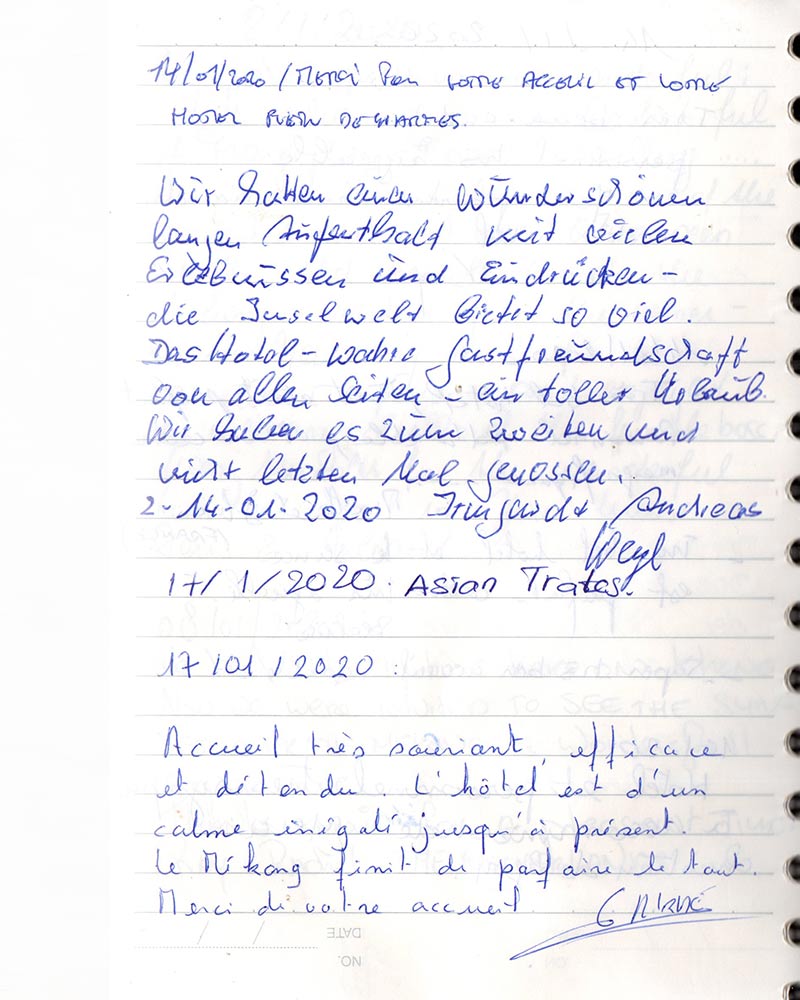 14/01/2020 / MERCI POUR VOTRE ACCEUIL ET VOTRE
HOTEL PLEIN DE CHARMES.
Wir hatten einen wunderschönen
langen Aufenthalt mit vielen
Erlebnissen und Eindrücken -
die Inselwelt bietet so viel.
Das Hotel - wahre Gastfreundschaft
von allen Seiten - ein toller Urlaub.
Wir haben es zum zweiten und
nicht letzten Mal genossen.
2.-14-01. 2020 Irmgard + Andreas
17/1/2020. Asian Trates.
17/01/2020:
Accueil très souriant, efficace
et détendu. L'hôtel est d'un
calme inégalé jusqu'à présent.
Le Mékong finit de parfaire le tout.
Merci de votre accueil.
DATE
NO.